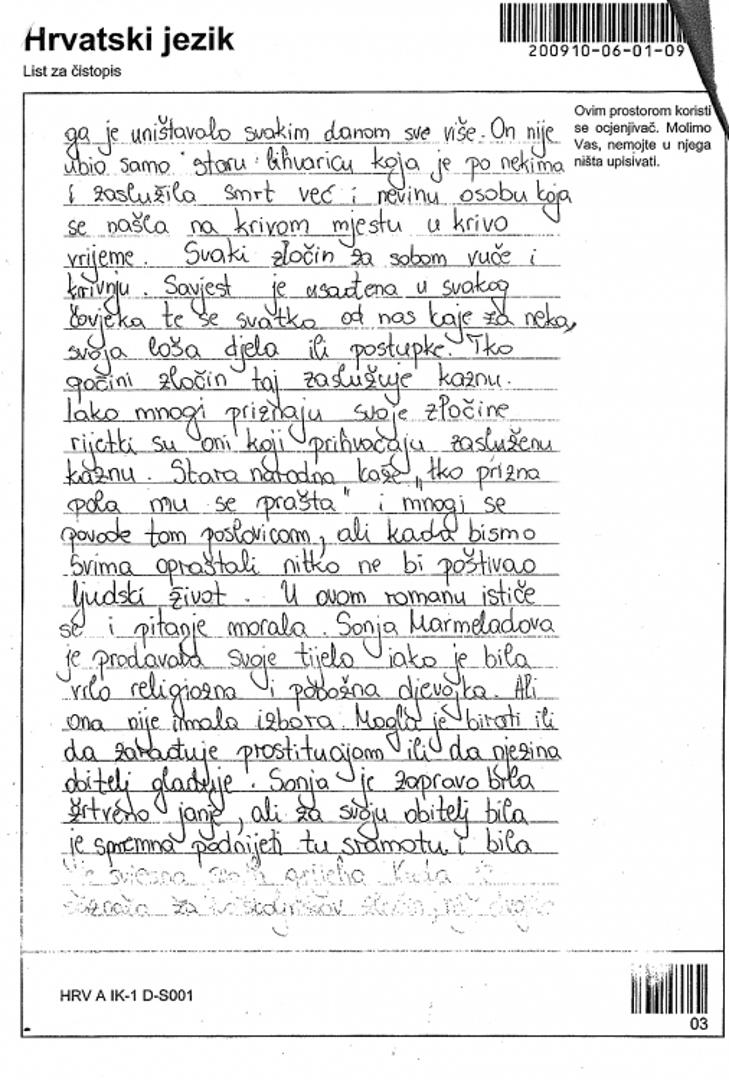 Hrvatski jezik
List za čistopis
200910-06-01-09
Ovim prostorom koristi
se ocjenjivač. Molimo
Vas, nemojte u njega
ništa upisivati.
ga je uništavalo svakim danom sve više. On nije
ubio samo staru lihvaricu koja je po nekima
i zaslužila smrt već i nevinu osobu koja
se našla na krivom mjestu u krivo
vrijeme. Svaki zločin za sobom vuče i
krivnju. Savjest je usađena u svakog
čovjeka te se svatko od nas kaje za neka,
svoja loša djela ili postupke. Tko
počini zločin taj zaslužuje kaznu.
Iako mnogi priznaju svoje zločine
rijetki su oni koji prihvaćaju zasluženu
kaznu. Stara narodna kaže „tko prizna
pola mu se prašta" i mnogi se
povode tom poslovicom, ali kada bismo
svima opraštali nitko ne bi poštivao
ljudski život. U ovom romanu ističe
se i pitanje morala. Sonja Marmeladova
je prodavala svoje tijelo iako je bila
vrlo religiozna i pobožna djevojka. Ali
ona nije imala izbora. Mogla je birati ili
da zarađuje prostitucijom ili da njezina
obitelj gladuje. Sonja je zapravo bila
žrtveno janje, ali za svoju obitelj bila
je spremna podnijeti tu sramotu i bila
je svjesna grijeha Kada je
saznala za zločin,
HRV A IK-1 D-S001
03